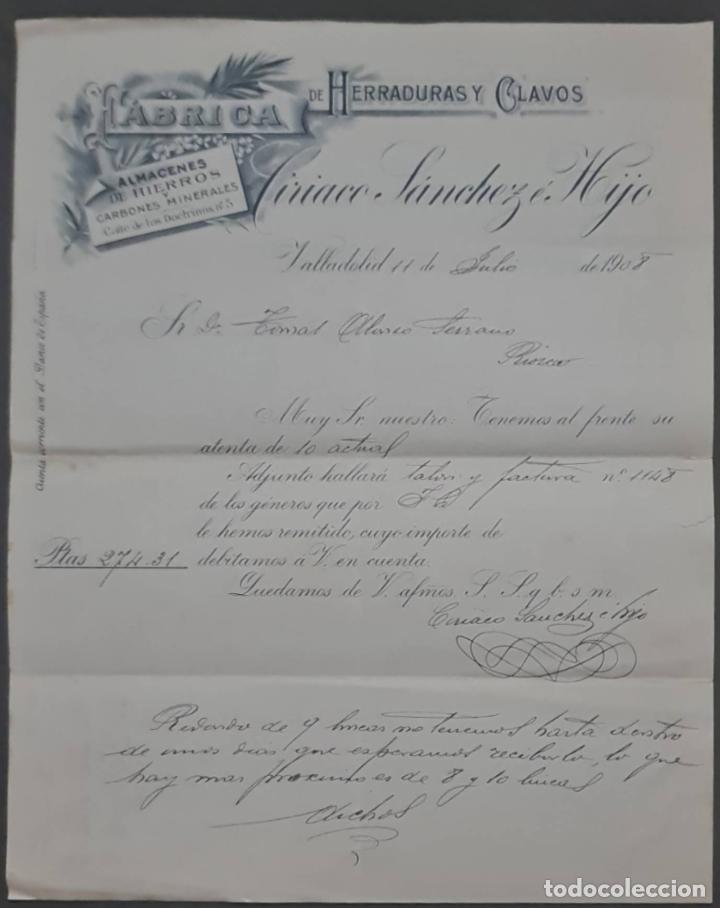 FÁBRICA DE HERRADURAS Y CLAVOS
ALMACENES
DE HIERROS
Y
CARBONES MINERALES
Calle de los Doctrinos, nº 5
Ciriaco Sánchez é Hijo
Valladolid 11 de Julio de 1908
Sr. D. Tomas Alonso Serrano
Rioseco
Cuenta corriente con el Banco de España
Muy Sr. nuestro: Tenemos al frente su
atenta de 10 actual
Adjunto hallará talon y factura nº 1148
de los géneros que por
le hemos remitido, cuyo importe de
Ptas 274.31 debitamos á V. en cuenta.
Quedamos de V. afmos. S. S. q. b. s. m.
Ciriaco Sanchez e hijo
Redondo de 9 lineas no tenemos hasta dentro
de unos dias que esperamos recibirlo, lo que
hay mas proximo es de 8 y 10 lineas
dichos
todocoleccion.net